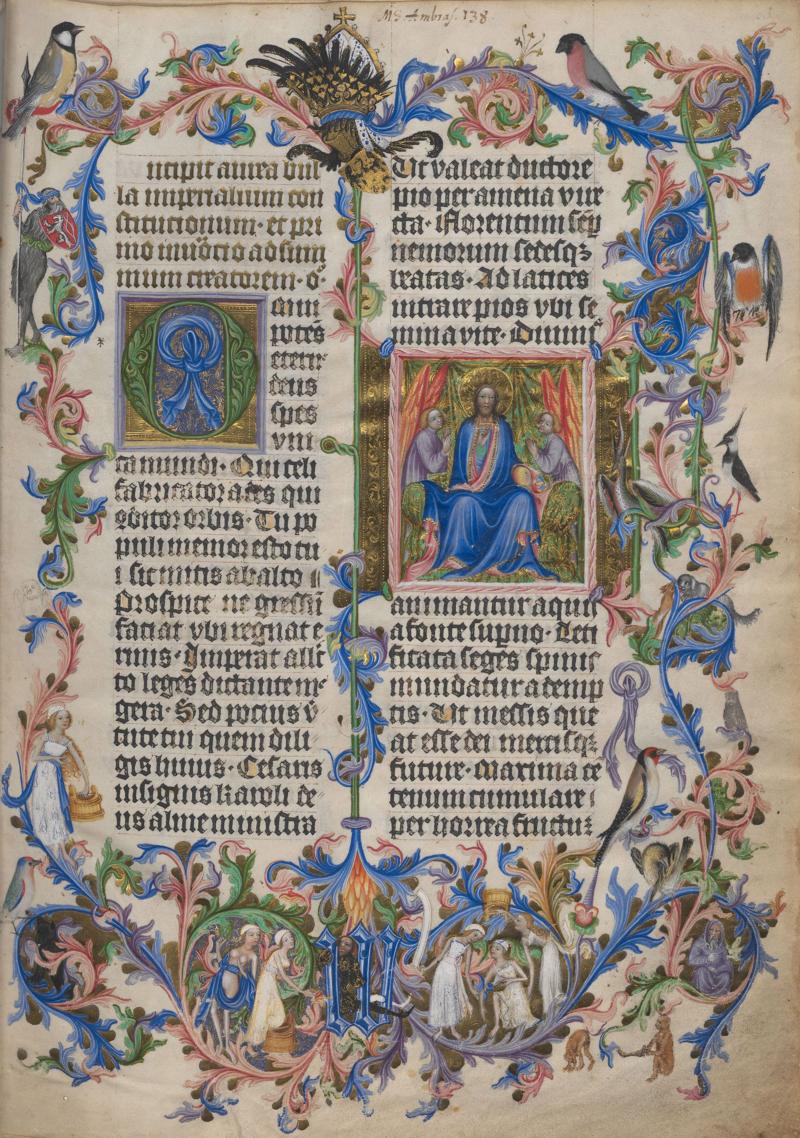 MS. Ambras. 138
ncipit aurea bul
la imperialium con
stitucionum · et pri
mo invocacio ad sum
mum creatorem · o
Omni
potes
eterne
deus
spes
vni
ca mundi · Qui celi
fabricator ades qui
conditor orbis · Tu po
puli memor esto tu
i sic mitis ab alto
Prospice ne gressu
faciat vbi regnat e
rinis · Imperat alle
to leges dictante me
gera · Sed pocius v
tute tui quem dili
gis huius · Cesaris
insignis karoli de
us alme ministra
Ut valeat ductore
pio per amena vire
cta · Florentum semp
nemorum sedesqz
beatas · Ad latices
intrare pios vbi se
mina vite · Diuini
animantur aquis
a fonte supno · Leti
ficata seges spinis
mundatur ademp
tis · Ut messis que
at esse dei mercisqz
future · Maxima ce
tenum cumulare
per horrea fructuz
W